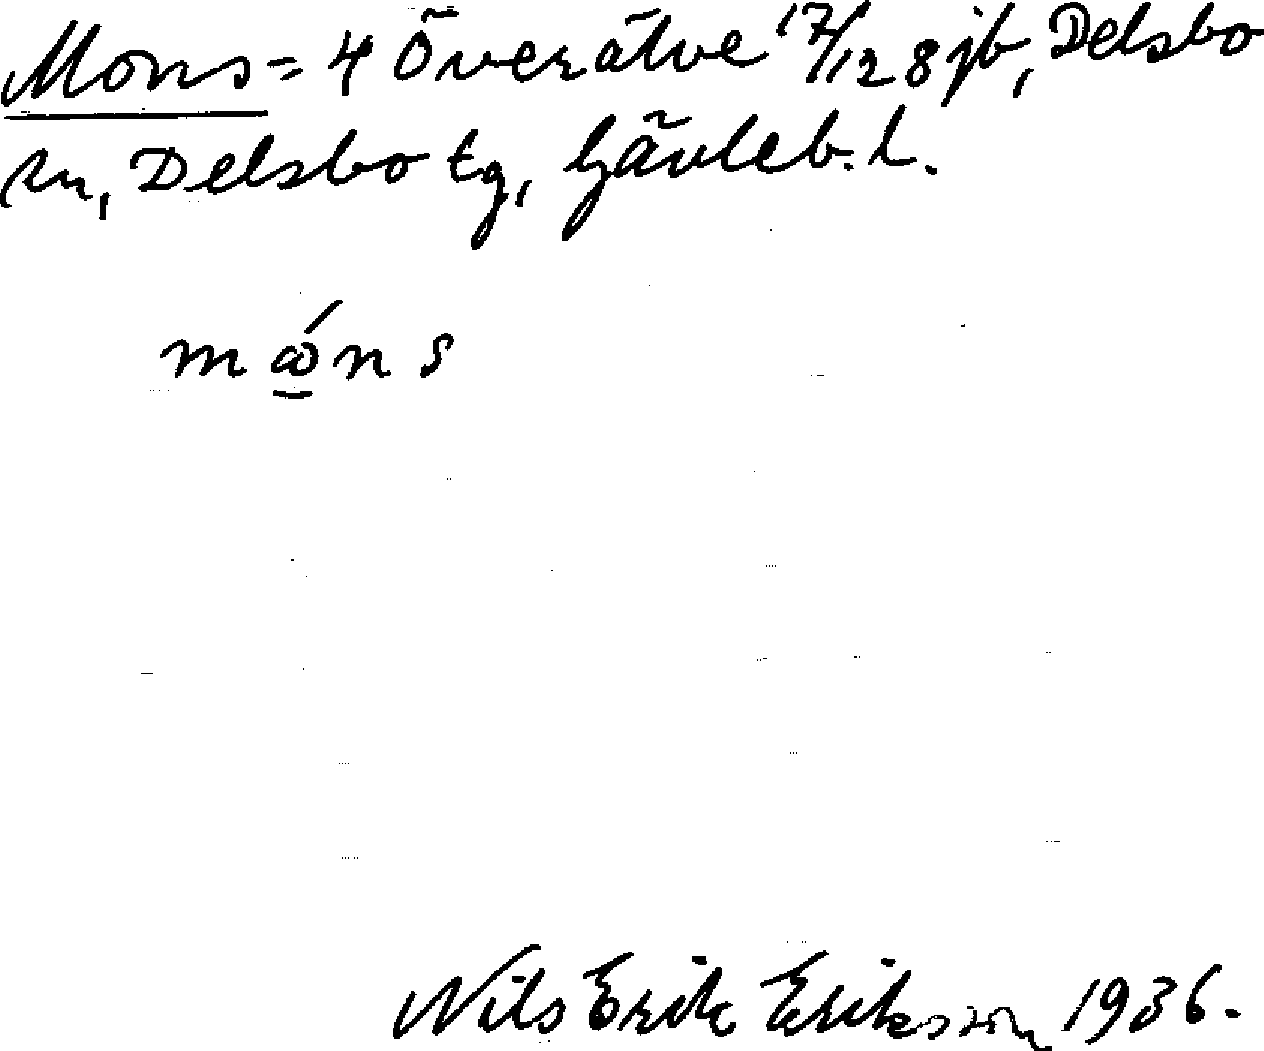 Mons = 4 Överälve 17/12 8 jb, Delsbo
sn, Delsbo tg, Gävleb. l.
m ώ̱ n s
Nils Erik Eriksson 1936.